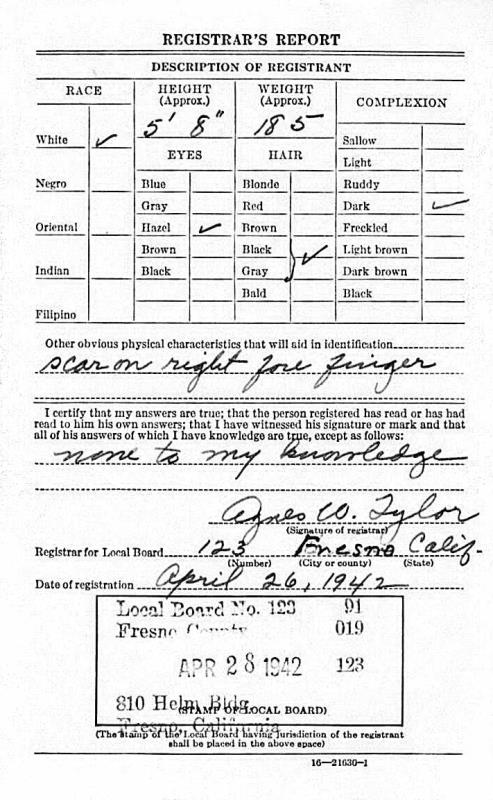 REGISTRAR'S REPORT
DESCRIPTION OF REGISTRANT
RACE
HEIGHT (Approx.)
WEIGHT (Approx.)
COMPLEXION
5' 8"
185
White ✓
EYES
HAIR
Sallow
Light
Negro
Blue
Blonde
Ruddy
Gray
Red
Dark ✓
Oriental
Hazel ✓
Brown
Freckled
Brown
Black
Light brown
Indian
Black
Gray
Dark brown
} ✓
Bald
Black
Filipino
Other obvious physical characteristics that will aid in identification
scar on right fore finger
I certify that my answers are true; that the person registered has read or has had
read to him his own answers; that I have witnessed his signature or mark and that
all of his answers of which I have knowledge are true, except as follows:
none to my knowledge
Agnes W. Tylor
(Signature of registrar)
Registrar for Local Board 123 Fresno Calif.
(Number) (City or county) (State)
Date of registration April 26, 1942
Local Board No. 123 91
Fresno County 019
APR 28 1942 123
810 Helm Bldg.
(STAMP OF LOCAL BOARD)
Fresno, California
(The stamp of the Local Board having jurisdiction of the registrant
shall be placed in the above space)
16—21630-1